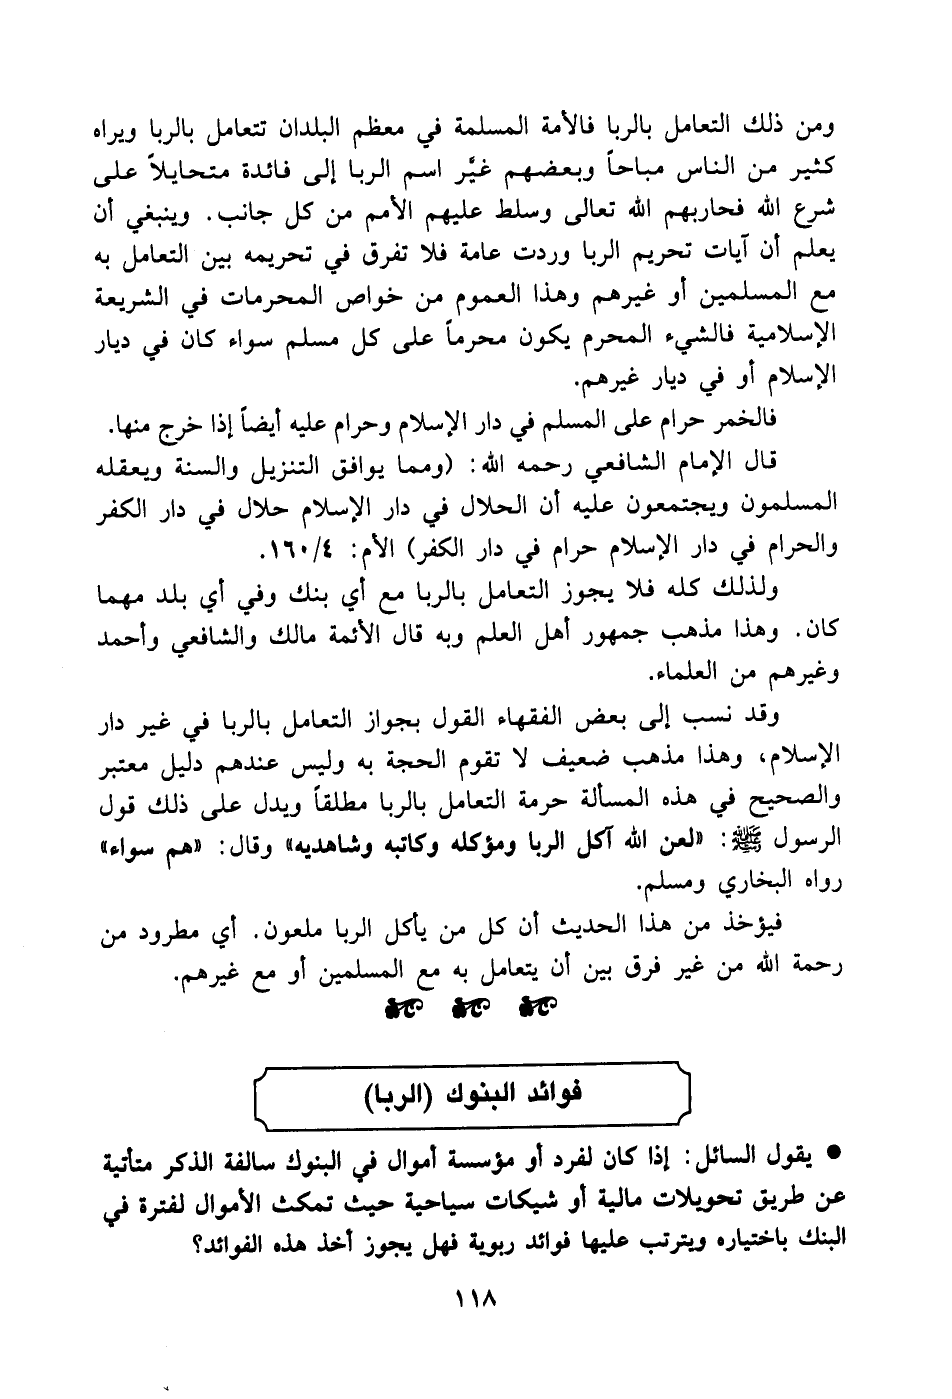 ومن ذلك التعامل بالربا فالأمة المسلمة في معظم البلدان تتعامل بالربا ويراه
كثير من الناس مباحاً وبعضهم غيَّر اسم الربا إلى فائدة متحايلاً على
شرع الله فحاربهم الله تعالى وسلط عليهم الأمم من كل جانب. وينبغي أن
يعلم أن آيات تحريم الربا وردت عامة فلا تفرق في تحريمه بين التعامل به
مع المسلمين أو غيرهم وهذا العموم من خواص المحرمات في الشريعة
الإسلامية فالشيء المحرم يكون محرماً على كل مسلم سواء كان في ديار
الإسلام أو في ديار غيرهم.
فالخمر حرام على المسلم في دار الإسلام وحرام عليه أيضاً إذا خرج منها.
قال الإمام الشافعي رحمه الله: (ومما يوافق التنزيل والسنة ويعقله
المسلمون ويجتمعون عليه أن الحلال في دار الإسلام حلال في دار الكفر
والحرام في دار الإسلام حرام في دار الكفر) الأم: ١٦٠/٤.
ولذلك كله فلا يجوز التعامل بالربا مع أي بنك وفي أي بلد مهما
كان. وهذا مذهب جمهور أهل العلم وبه قال الأئمة مالك والشافعي وأحمد
وغيرهم من العلماء.
وقد نسب إلى بعض الفقهاء القول بجواز التعامل بالربا في غير دار
الإسلام، وهذا مذهب ضعيف لا تقوم الحجة به وليس عندهم دليل معتبر
والصحيح في هذه المسألة حرمة التعامل بالربا مطلقاً ويدل على ذلك قول
الرسول ﷺ: «لعن الله آكل الربا ومؤكله وكاتبه وشاهديه» وقال: «هم سواء»
رواه البخاري ومسلم.
فيؤخذ من هذا الحديث أن كل من يأكل الربا ملعون. أي مطرود من
رحمة الله من غير فرق بين أن يتعامل به مع المسلمين أو مع غيرهم.
فوائد البنوك (الربا)
● يقول السائل: إذا كان لفرد أو مؤسسة أموال في البنوك سالفة الذكر متأتية
عن طريق تحويلات مالية أو شيكات سياحية حيث تمكث الأموال لفترة في
البنك باختياره ويترتب عليها فوائد ربوية فهل يجوز أخذ هذه الفوائد؟
١١٨